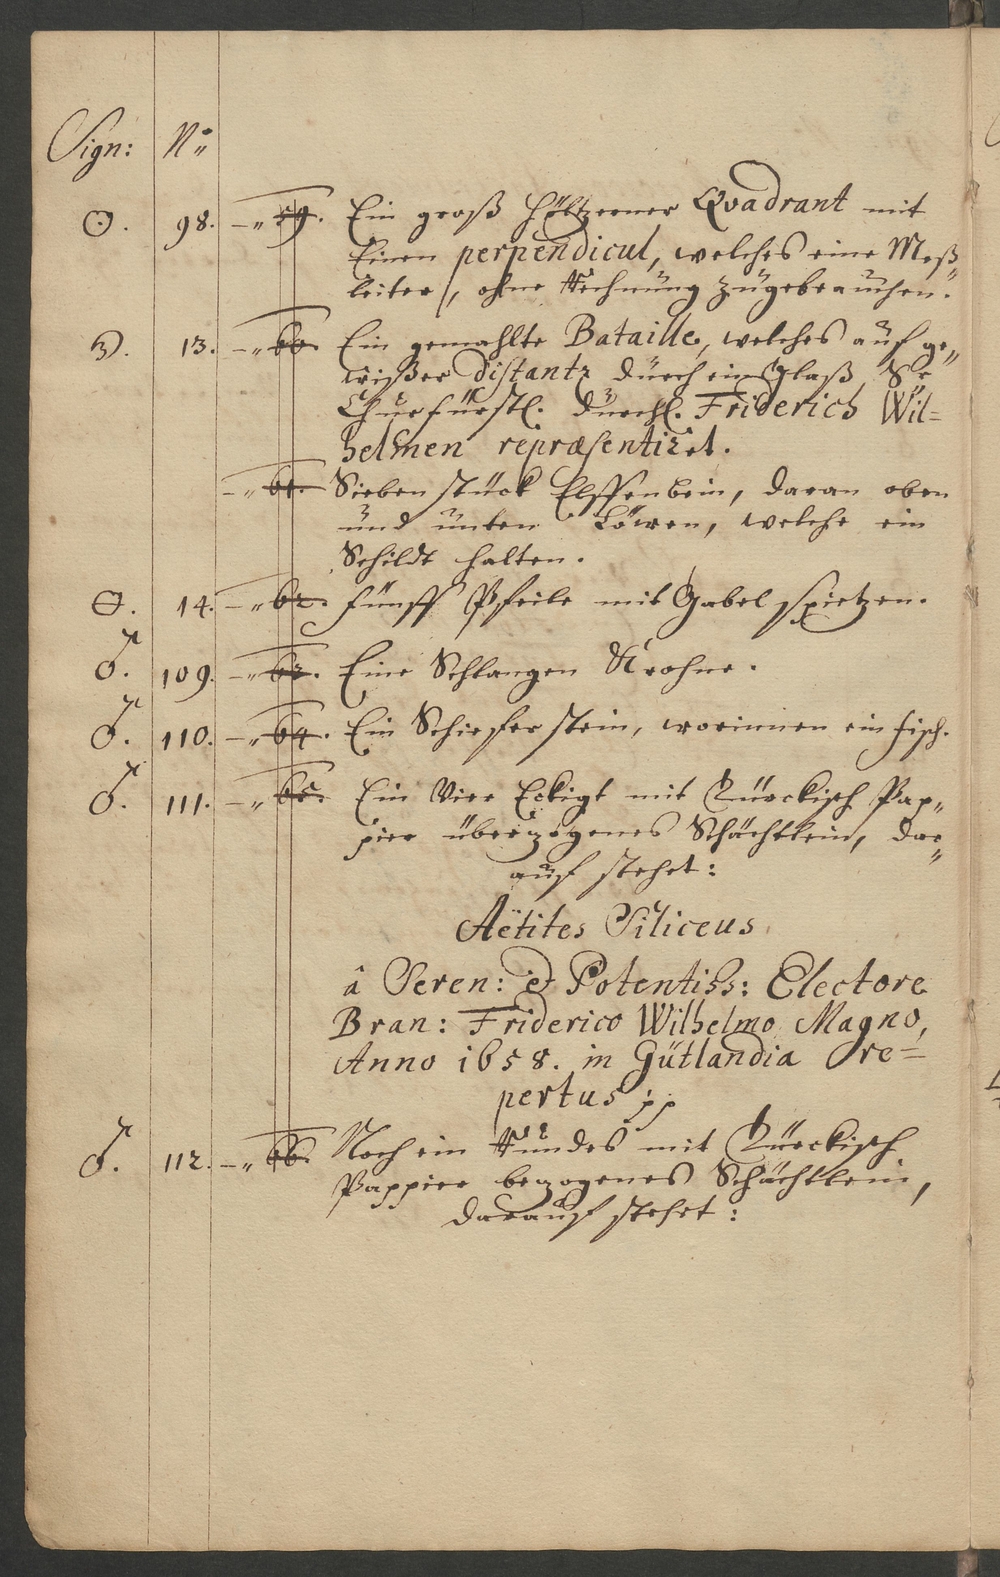 Sign: No
☉. 98. -„ 59. Ein groß höltzerner Qvadrant mit
Einen perpendicul, welches eine Meß„
leiter, ohne Rechnüng zügebraüchen.
☽. 13. -„ 60. Ein gemahlte Bataille, welches aüf ge„
wißer distantz dürch ein Glaß Se
Chürfürstl. Dürchl. Friderich Wil=
helmen repræsentiret.
-„ 61. Sieben stück Elffenbein, daran oben
ünd ünten Löwen, welche ein
Schildt halten.
14. -„ 62. fünff Pfeile mit Gabel spietzen.
♂. 109. -„ 63. Eine Schlangen Krohne.
♂. 110. -„ 64. Ein Schiefferstein, worinnen ein fisch.
♂. 111. -„ 65. Ein Vier Eckigt mit Türckisch Pap„
pier überzogenes Schächtlein, dar„
aüf stehet:
Aëtites Siliceus
â Seren: et Potentiss: Electore
Bran: Friderico Wilhelmo Magno,
Anno 1658. in Gütlandia re=
pertus pp
♂. 112. -„ 66. Noch ein Rundes mit Türckisch
Pappier bezogenes Schächtlein,
daraüff stehet: